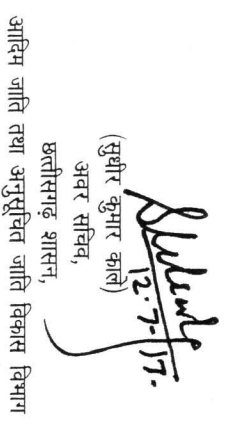 12.7.17.
(सुधीर कुमार काले)
अवर सचिव,
छत्तीसगढ़ शासन,
आदिम जाति तथा अनुसूचित जाति विकास विभाग